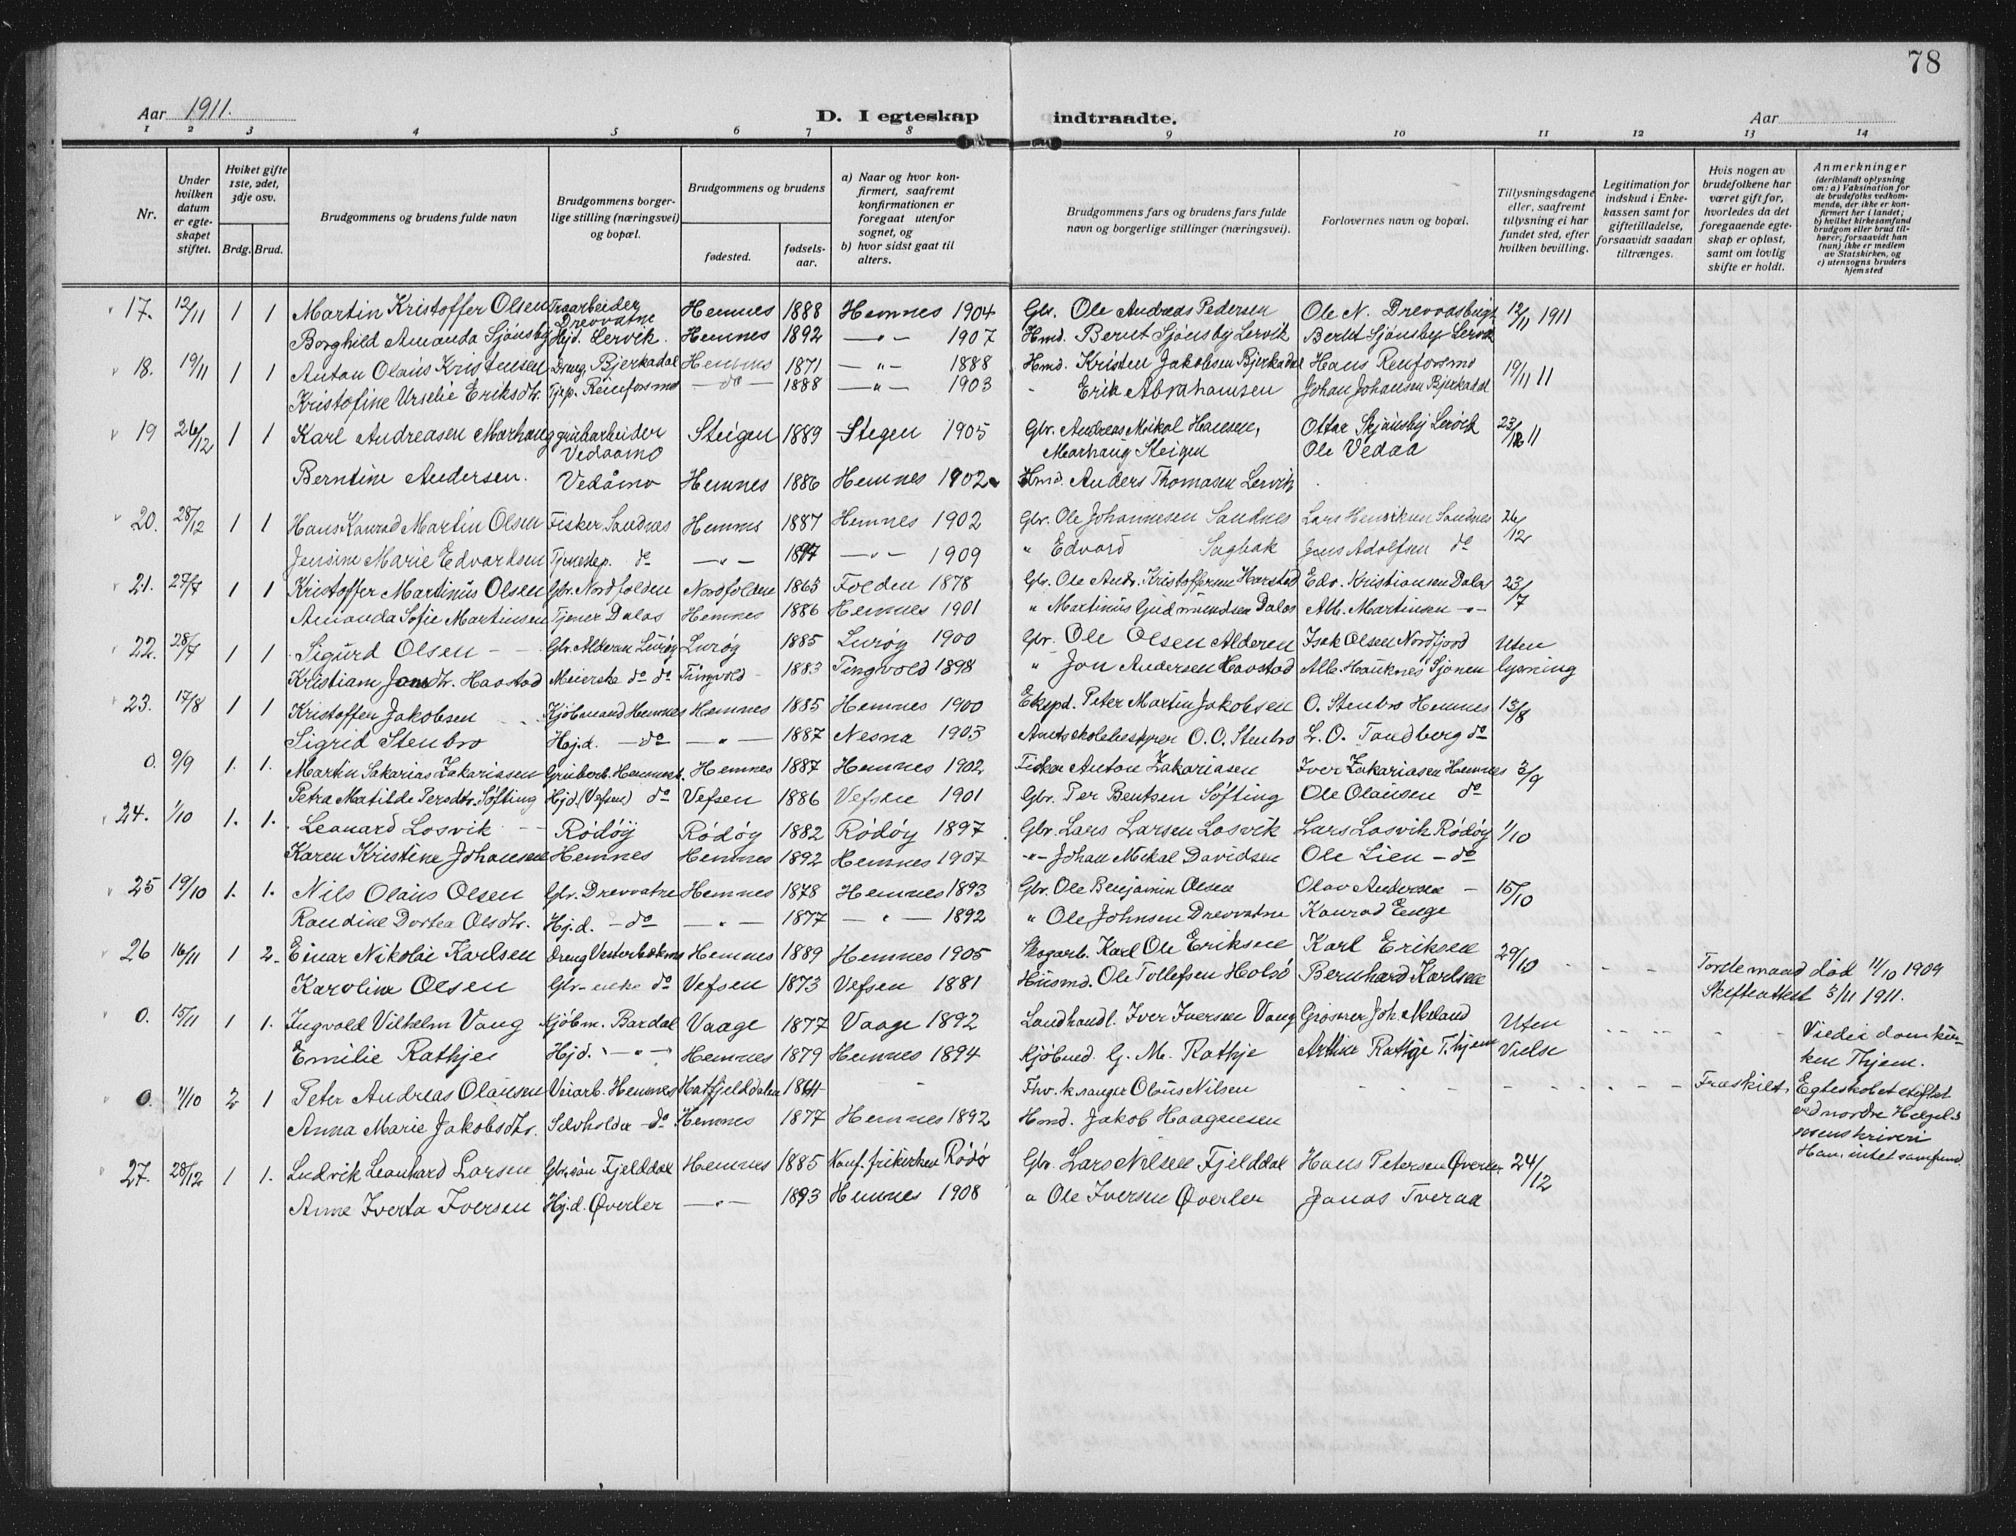 78
Aar 1911.
D. I egteskap indtraadte.
Aar
1 2 3 4 5 6 7 8 9 10 11 12 13 14
Nr.
Under hvilken datum er egteskapet stiftet.
Hviket gifte 1ste, 2det, 3dje osv.
Brdg. Brud.
Brudgommens og brudens fulde navn
Brudgommens borgerlige stilling (næringsvei) og bopæl.
Brudgommens og brudens
fødested.
fødselsaar.
a) Naar og hvor konfirmert, saafremt konfirmationen er foregaat utenfor sognet, og
b) hvor sidst gaat til alters.
Brudgommens fars og brudens fars fulde navn og borgerlige stillinger (næringsvei).
Forlovernes navn og bopæl.
Tillysningsdagene eller, saafremt tillysning ei har fundet sted, efter hvilken bevilling.
Legitimation for indskud i Enkekassen samt for giftetilladelse, forsaavidt saadan tiltrænges.
Hvis nogen av brudefolkene har været gift før, hvorledes da det foregaaende egteskap er opløst, samt om lovlig skifte er holdt.
Anmerkninger (deriblandt oplysning om: a) Vaksination for de brudefolks vedkommende, der ikke er konfirmert her i landet; b) hvilket kirkesamfund brudgom eller brud tilhører, forsaavidt han (hun) ikke er medlem av Statskirken, og c) utensogns bruders hjemsted
17. 12/11 1 1 Martin Kristoffer Olsen Træarbeider Drevvatne Hemnes 1888 Hemnes 1904 Gbr. Ole Andreas Pedersen Ole N. Drevvasbugt 12/11 1911
Borghild Amanda Sjønsby Hjd. Lervik. Hemnes 1892 — " — 1907 Hmd. Bernt Sjønsby Lervik Bernt Sjønsby Lervik
18. 19/11 1 1 Anton Olaus Kristensen Dreng Bjerkadal Hemnes 1871 — " — 1888 Hmd. Kristen Jakobsen Bjerkadal Hans Renforsmo 19/11 11
Kristofine Urselie Eriksdtr. Tjep. Reinforsmo — do — 1888 — " — 1903 " Erik Abrahamsen Johan Johansen Bjerkadal
19 26/12 1 1 Karl Andreasen Marhaug grubarbeider Vedaamo Steigen 1889 Stegen 1905 Gbr. Andreas Meikal Hansen, Marhaug Steigen Ottar Skjønsby Lervik 23/12 11
Ole Vedaa
Berntine Andersen. Vedåmo Hemnes 1886 Hemnes 1902. Hmd. Anders Thomasen Lervik
20. 28/12 1 1 Hans Konrad Martin Olsen Fisker Sandnes Hemnes 1887 Hemnes 1902 Gbr. Ole Johannesen Sandnes Lars Henriksen Sandnes 26/12
Jensine Marie Edvardsen Tjenestep. do — " — 1894 — " — 1909 " Edvard Sagbak Jens Adolfsen do
21. 27/7 1 1 Kristoffer Martinus Olsen Gbr. Nordfolden Nordfolden 1863 Folden 1878 Gbr. Ole Andr. Kristoffersen Harstad Edv. Kristiansen Dalos 23/7
Amanda Sofie Martinsen Tjener Dalos Hemnes 1886 Hemnes 1901 " Martinus Gudmundsen Dalos Alb. Martinsen — " —
22. 28/7 1 1 Sigurd Olsen Gbr. Alderen Lurøy Lurøy 1885 Lurøy 1900 Gbr. Ole Olsen Alderen Isak Olsen Nordfjord Uten
Kristiam Jonsdtr. Haostad Meierske do do Tingvold 1883 Tingvold 1898 " Jon Andersen Haostad Alb. Hauknes Sjonen lysning
23. 17/8 1 1 Kristoffer Jakobsen Kjøbmand Hemnes Hemnes 1885 Hemnes 1900 Eksped. Peter Martin Jakobsen O. Stenbro Hemnes 13/8
Sigrid Stenbro Hj.d. — do — " — 1887 Nesna 1903 Amtsskolebestyrer O. C. Stenbro L. O. Tandberg do
0. 9/9 1. 1. Martin Sakarias Zakariassen Grubarb. Hemnes Hemnes 1887 Hemnes 1902 Fisker Anton Zakariasen Iver Zakariasen Hemnes 3/9
Petra Matilde Persdtr. Søfting Hjd (Vefsen) do Vefsen 1886 Vefsen 1901 Gbr. Per Bentsen Søfting Ole Olausen do
24. 1/10 1. 1. Leonard Losvik Rödöy Rödöy 1882 Rödöy 1897 Gbr. Lars Larsen Losvik Lars Losvik Rödöy 1/10
Karen Kristine Johansen Hemnes Hemnes 1892 Hemnes 1907 — " — Johan Mekal Davidsen Ole Lien — do
25 19/10 1. 1. Nils Olaus Olsen Gbr. Drevvatne Hemnes 1878 Hemnes 1893 Gbr. Ole Benjamin Olsen Olav Andersen — 15/10
Randine Dortea Olsdtr. Hj.d. — do — " — 1877 — " — 1892 " Ole Johnsen Drevvatne Konrad Enge
26 16/11 1 2. Einar Nikolai Karlsen Dreng Vesterbækmo Hemnes 1889 Hemnes 1905 Skogarb. Karl Ole Eriksen Karl Eriksen 29/10 Forste mand død 11/10 1909
Karoline Olsen Gbr. enke do Vefsen 1873 Vefsen 1881 Husmd. Ole Tollefsen Holsö Bernhard Karlsen Skifteattest 3/11 1911.
0. 15/11 1 1. Ingvald Vilhelm Vang Kjöbm. Bardal Vaage 1877 Vaage 1892 Landhandl. Iver Iversen Vang Grosserer Joh. Meland Uten Viedi domkirken Thjem.
Emilie Rathje Hj.d. — " — Hemnes 1879 Hemnes 1894 Kjöbmd. G. M. Rathje Arthur Rathje T.hjem Vielse
0. 7/10 2 1 Peter Andreas Olausen Veiarb. Hemnes Hatfjelddalen 1864 Fhv. k.sanger Olaus Nilsen Fraskilt. Egteskabet stiftet ved nordre Helgel. sorenskriveri
Anna Marie Jakobsdtr. Selvholder do Hemnes 1877 Hemnes 1892 Hmd. Jakob Haagensen Han intet samfund
27. 28/12 1 1. Ludvik Leonhard Larsen Gbr.søn Fjelldal Hemnes 1885 Konf. frikirken Rödö Gbr. Lars Nilsen Fjelddal Hans Petersen Øverler 24/12
Anne Iverta Iversen Hj.d. Øverler — " — 1893 Hemnes 1908 " Ole Iversen Øverler Jonas Tveraa